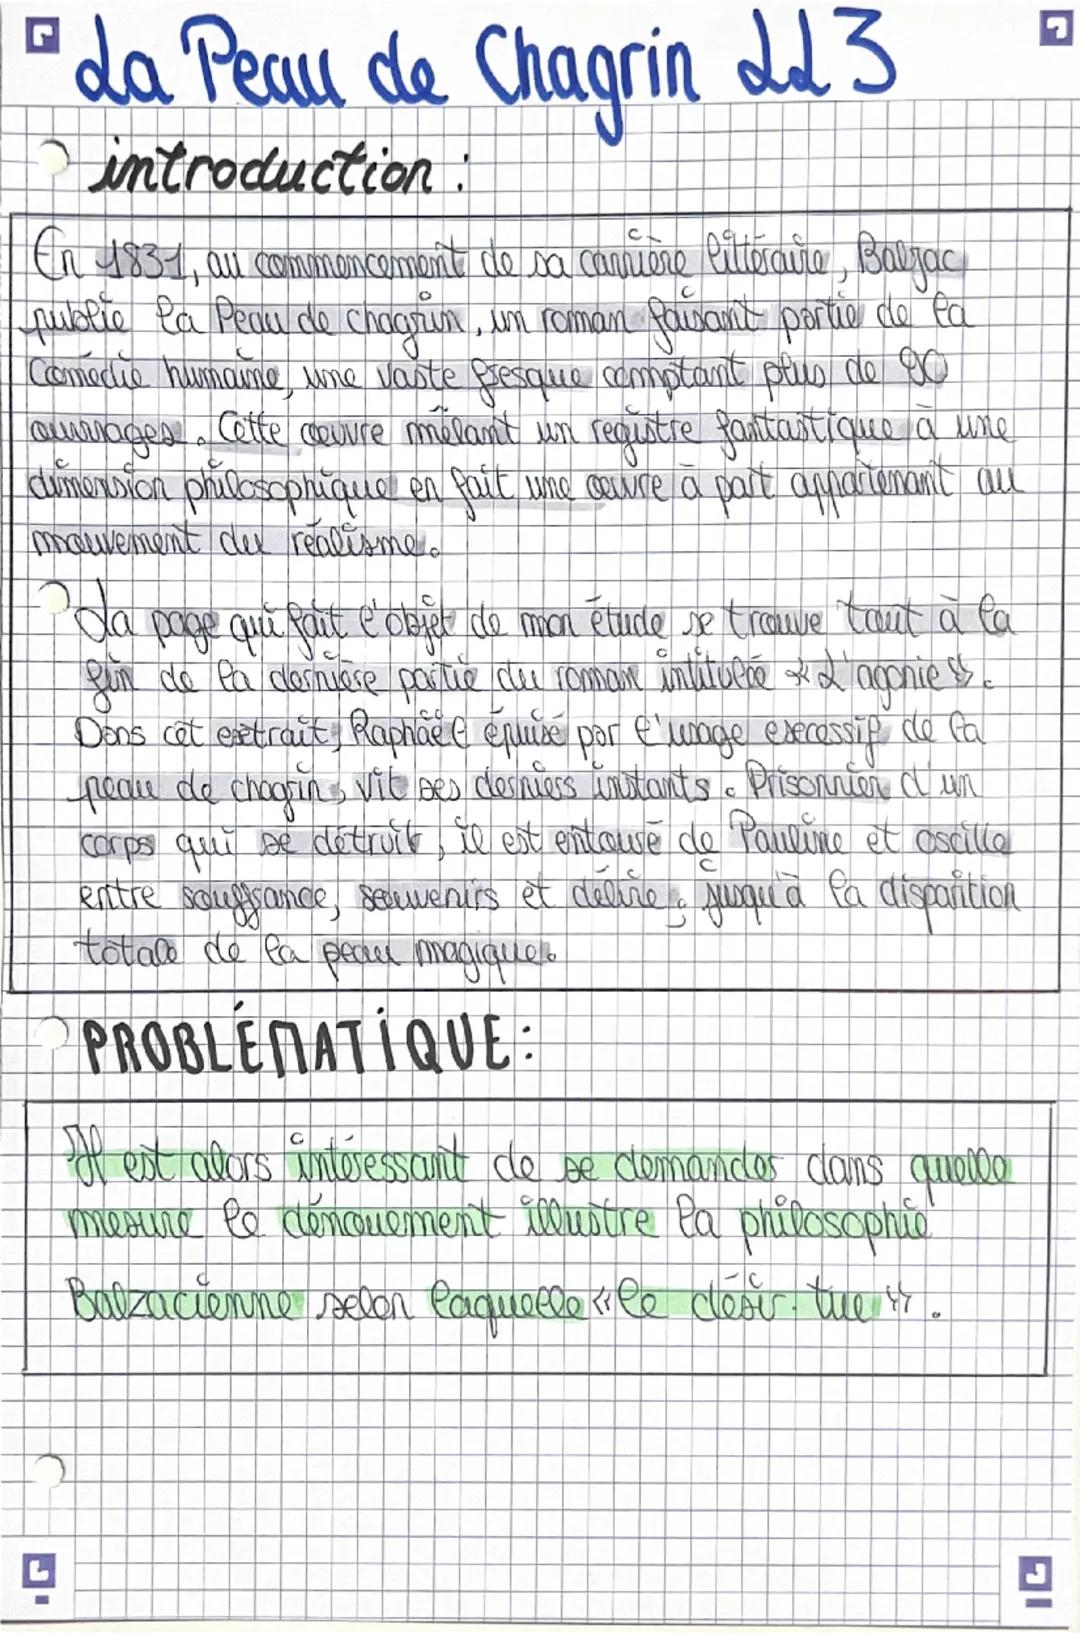 La Peau de Chagrin LL3
introduction :
En 1831, au commencement de sa carrière littéraire, Balzac
publie la Peau de chagrin, un roman faisant partie de la
Comédie humaine, une vaste fresque comptant plus de 90
ouvrages. Cette œuvre mêlant un registre fantastique à une
dimension philosophique en fait une œuvre à part appartenant au
mouvement du réalisme.
La page qui fait l'objet de mon étude se trouve tout à la
fin de la dernière partie du roman intitulée « L'agonie ».
Dans cet extrait, Raphaël épuisé par l'usage excessif de la
peau de chagrin, vit ses derniers instants. Prisonnier d'un
corps qui se détruit, il est entouré de Pauline et oscille
entre souffrance, souvenirs et délire, jusqu'à la disparition
totale de la peau magique.
PROBLÉMATIQUE :
Il est alors intéressant de se demander dans quelle
mesure le dénouement illustre la philosophie
Balzacienne selon laquelle « le désir tue ».